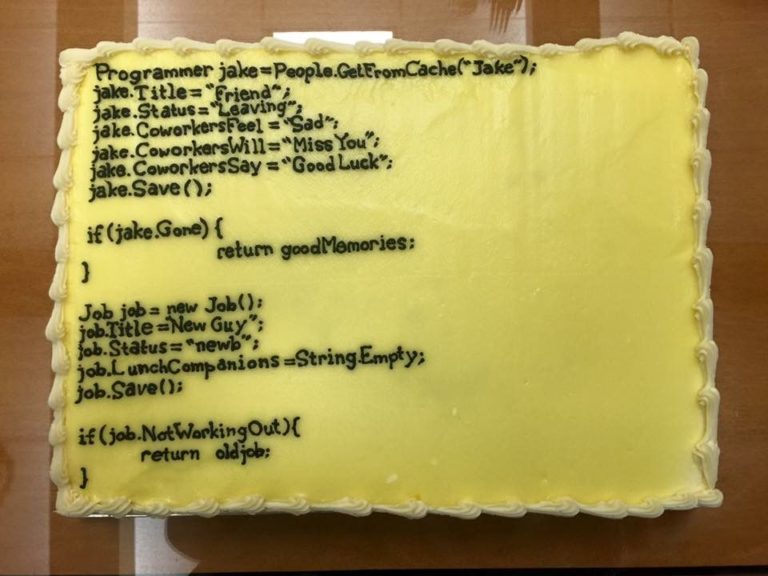 Programmer jake=People.GetFromCache("Jake");
jake.Title="Friend";
jake.Status="Leaving";
jake.CoworkersFeel="Sad";
jake.CoworkersWill="Miss You";
jake.CoworkersSay="Good Luck";
jake.Save();
if(jake.Gone) {
return goodMemories;
}
Job job = new Job();
job.Title=New Guy";
job.Status="newb";
job.LunchCompanions=String.Empty;
job.Save();
if(job.NotWorkingOut){
return oldjob;
}